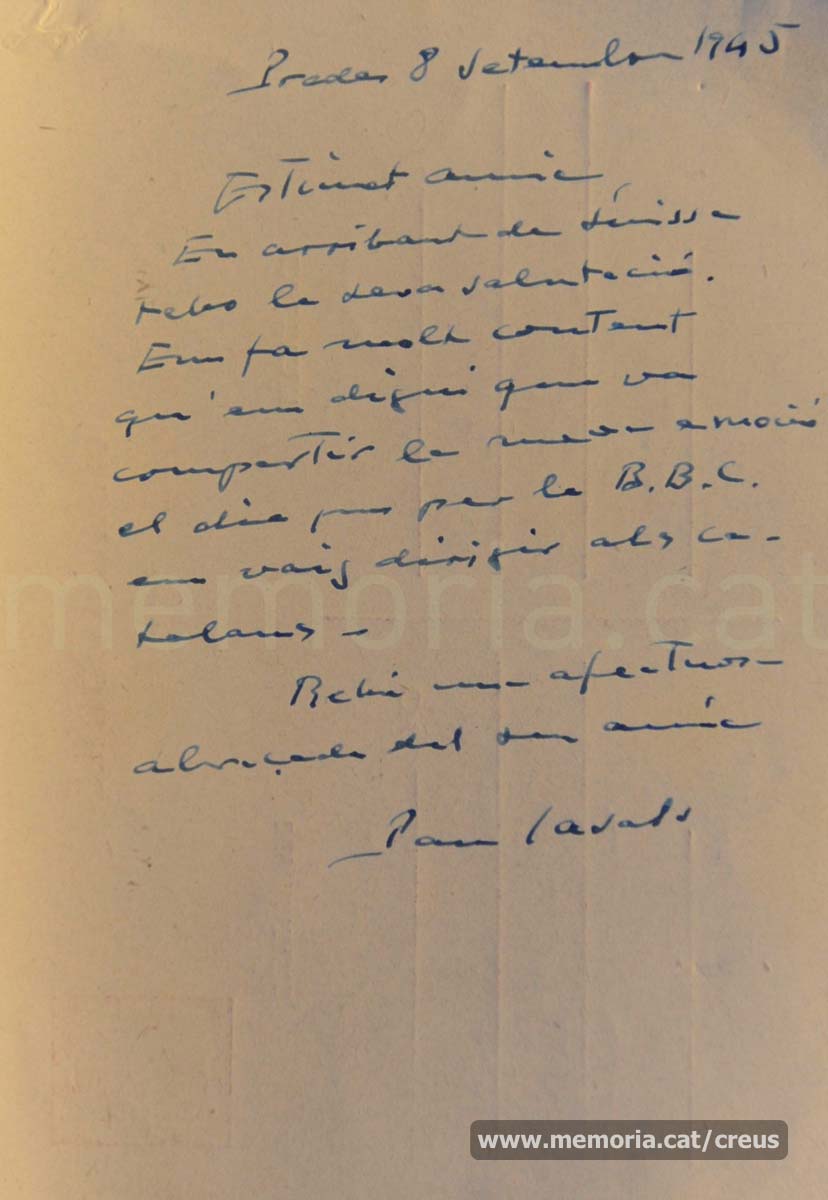 Prades 8 setembre 1945
Estimat amic
En arribant de Suissa
rebo la seva salutació.
Em fa molt content
qu'em digui que va
compartir la meva emoció
el dia que per la B.B.C.
em vaig dirigir als ca-
talans -
Rebi una afectuosa
abraçada del seu amic
Pau Casals
memoria.cat
www.memoria.cat/creus